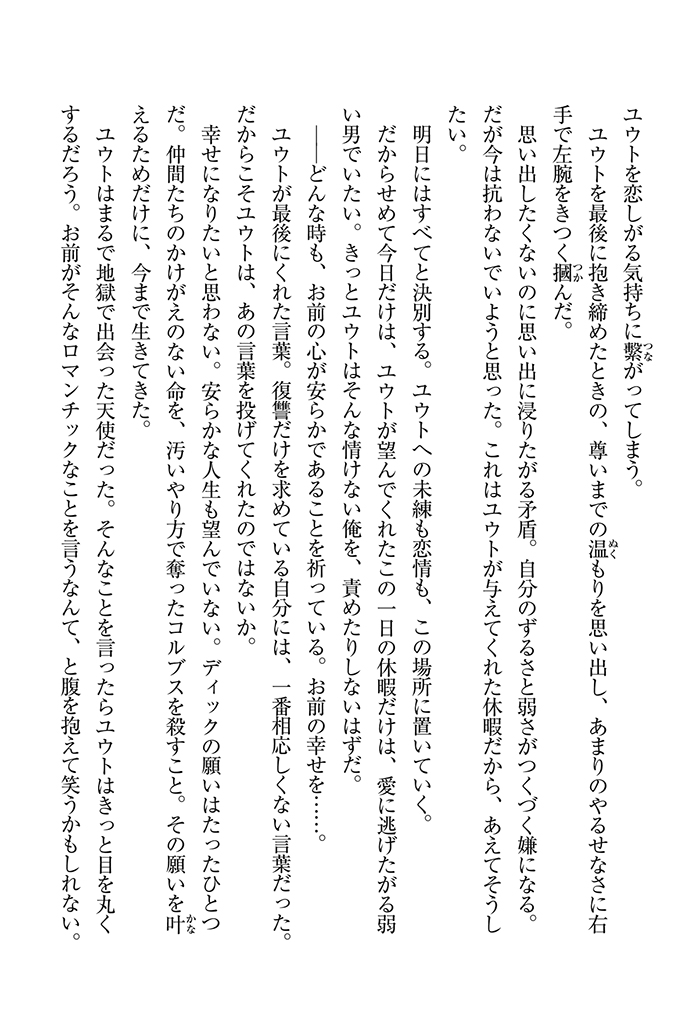 ユウトを恋しがる気持ちに繫がってしまう。
ユウトを最後に抱き締めたときの、尊いまでの温もりを思い出し、あまりのやるせなさに右
手で左腕をきつく摑んだ。
思い出したくないのに思い出に浸りたがる矛盾。自分のずるさと弱さがつくづく嫌になる。
だが今は抗わないでいようと思った。これはユウトが与えてくれた休暇だから、あえてそうし
たい。
明日にはすべてと決別する。ユウトへの未練も恋情も、この場所に置いていく。
だからせめて今日だけは、ユウトが望んでくれたこの一日の休暇だけは、愛に逃げたがる弱
い男でいたい。きっとユウトはそんな情けない俺を、責めたりしないはずだ。
――どんな時も、お前の心が安らかであることを祈っている。お前の幸せを……。
ユウトが最後にくれた言葉。復讐だけを求めている自分には、一番相応しくない言葉だった。
だからこそユウトは、あの言葉を投げてくれたのではないか。
幸せになりたいと思わない。安らかな人生も望んでいない。ディックの願いはたったひとつ
だ。仲間たちのかけがえのない命を、汚いやり方で奪ったコルブスを殺すこと。その願いを叶
えるためだけに、今まで生きてきた。
ユウトはまるで地獄で出会った天使だった。そんなことを言ったらユウトはきっと目を丸く
するだろう。お前がそんなロマンチックなことを言うなんて、と腹を抱えて笑うかもしれない。